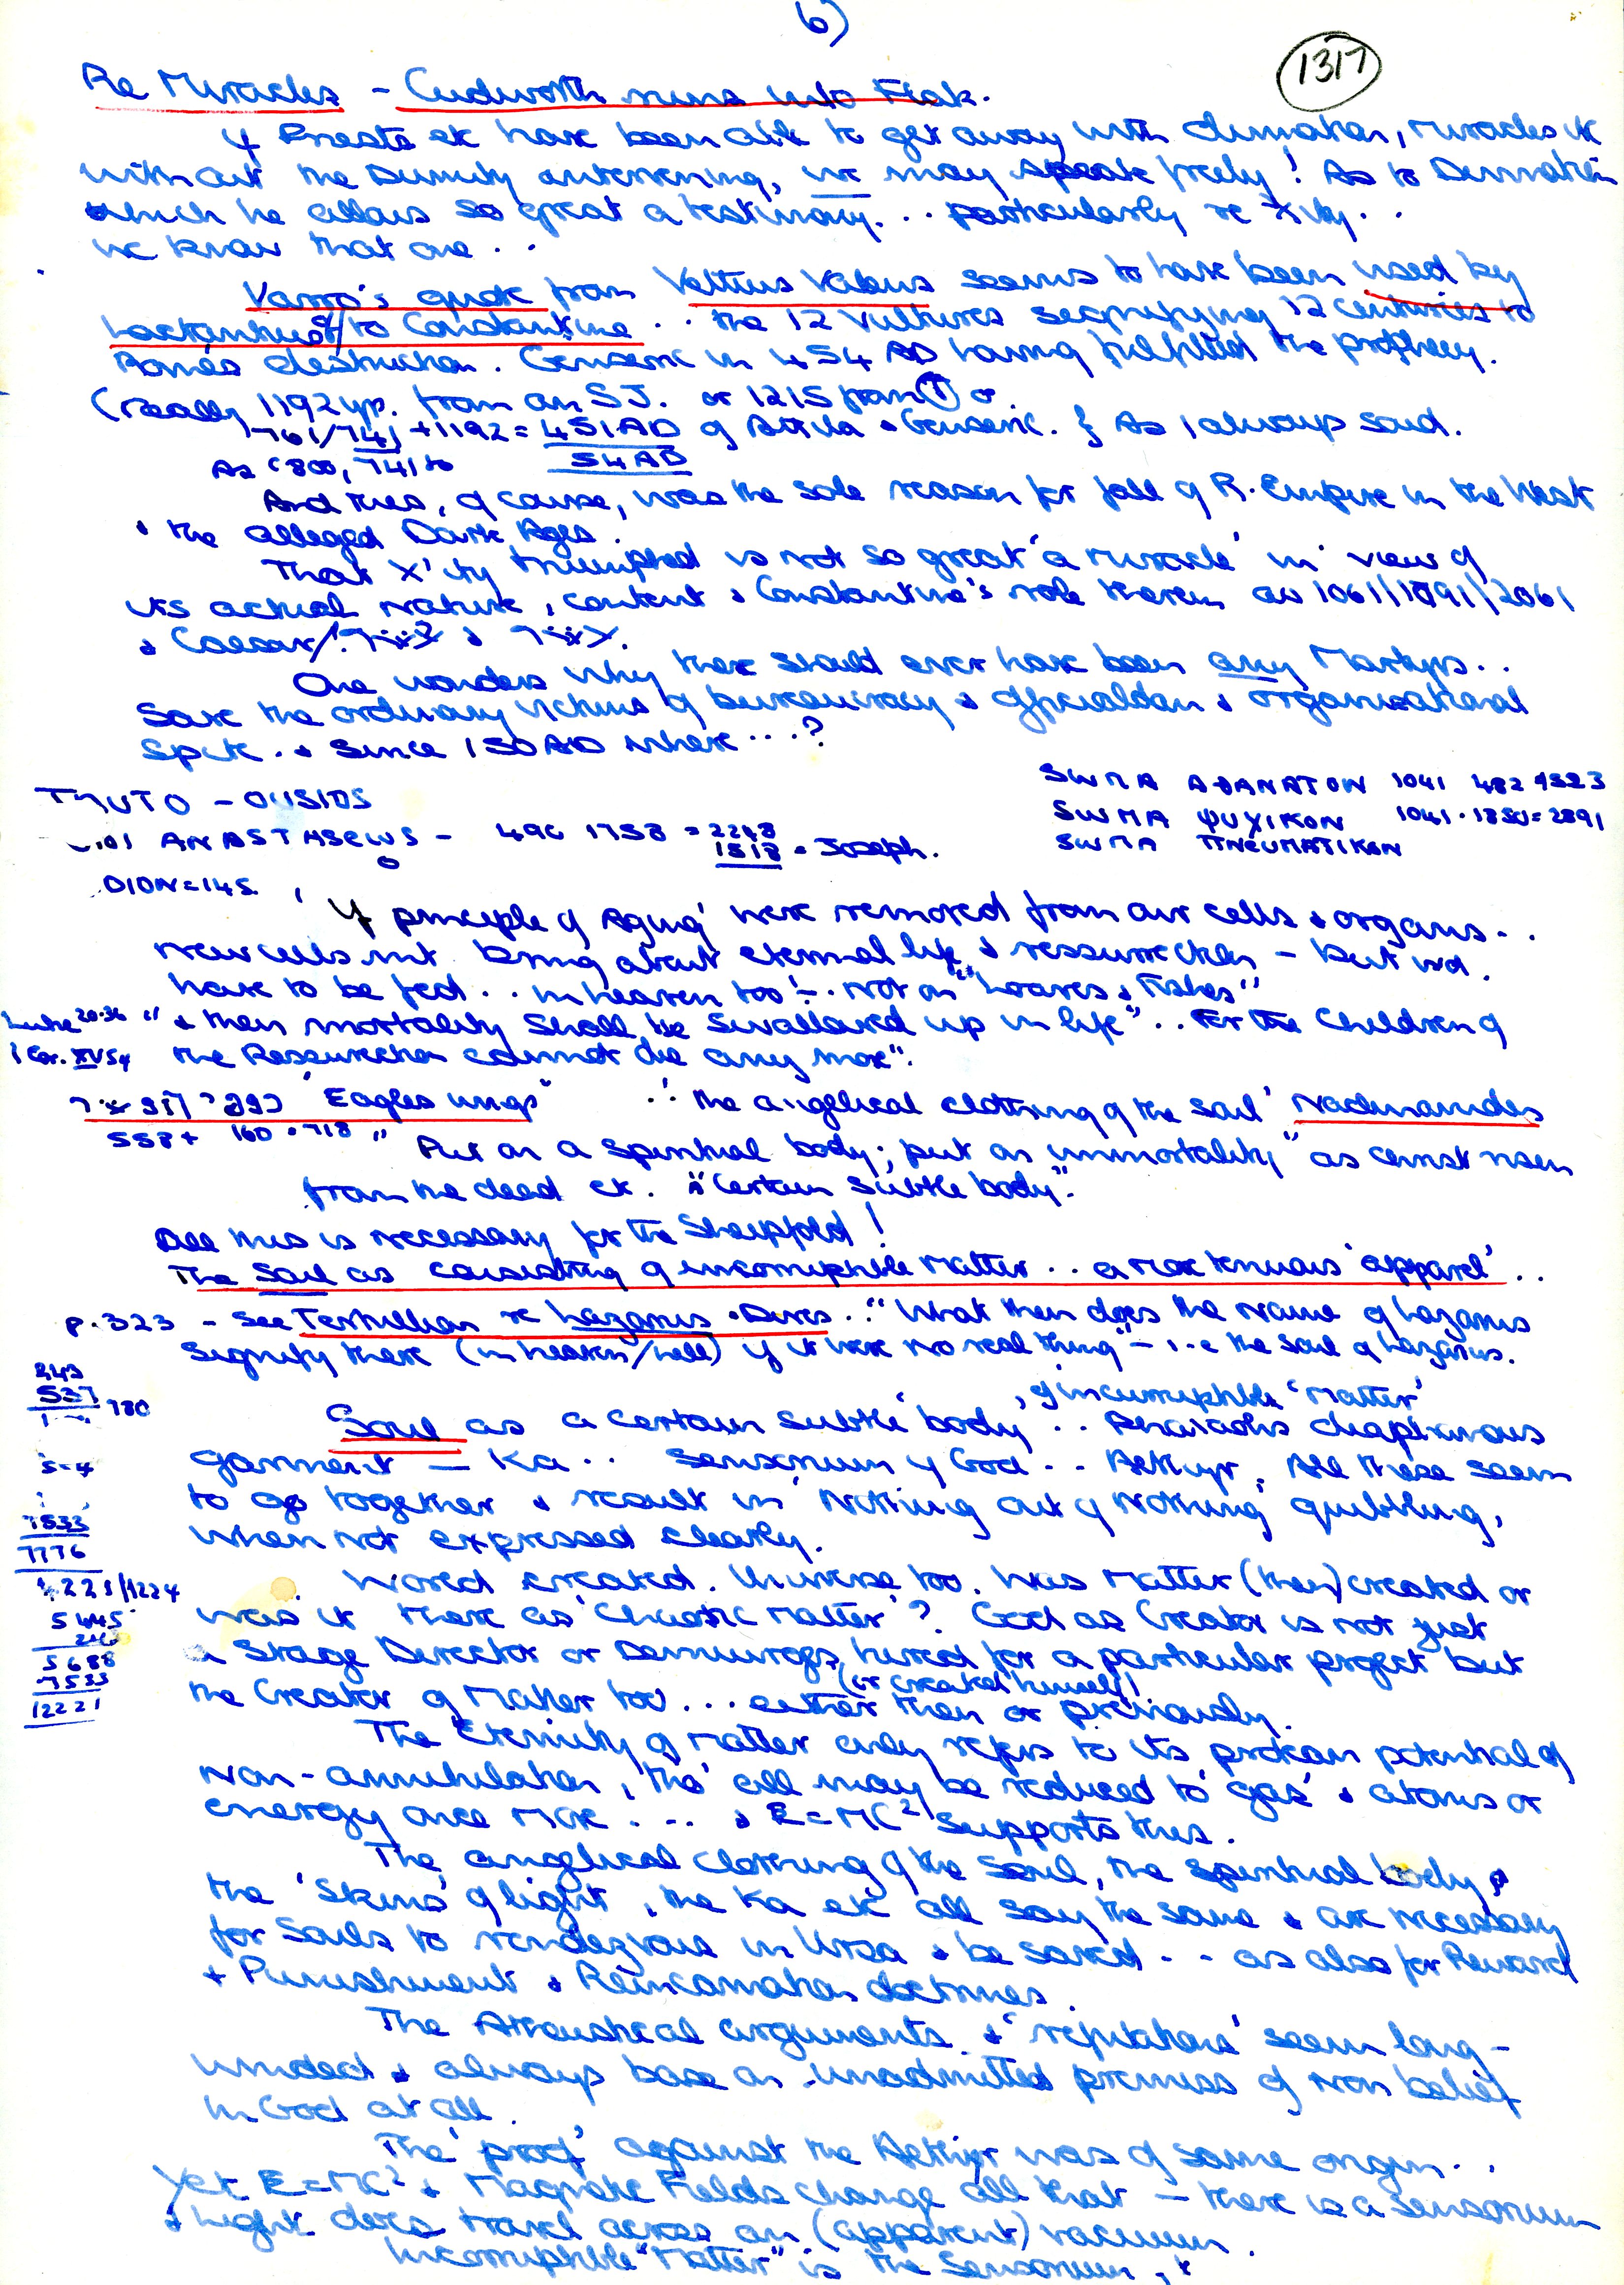 6)
1317
Re Miracles - Cudworth runs into Flak.
If Priests etc have been able to get away with divination, miracles etc
without the Divinity intervening, we may speak freely! As to Divination
which he allows so great a testimony... particularly re X'ity..
we know that one..
Varro's quote from Vettius Valens seems to have been used by
Lactantius to Constantine.. the 12 Vultures signifying 12 centuries to
Rome's destruction. Genseric in 454 AD having fulfilled the prophecy.
(really 1192 yr. from an SJ. or 1215 from
761/741 + 1192 = 451 AD of Attila & Genseric. } As I always said.
As (800, 741 to 54 AD
And this, of course, was the sole reason for fall of R. Empire in the West
& the alleged Dark Ages.
That X'ity triumphed is not so great 'a miracle' in view of
its actual nature, content & Constantine's role therein as 1061/1091/2061
& Caesar/
One wonders why there should ever have been any Martyrs..
Save the ordinary victims of bureaucracy & officialdom & organisational
spite. & since 150 AD where...?
SWMA AθANATON 1041 482 1523
- OUSIOS
SWMA ΨUXIKON 1041.1850=2891
ANASTASEWS - 490 1758 = 2248
SWMA ΠNEUMATIKON
1518 = Joseph.
OION=145
'If principle of Aging' were removed from our cells & organs..
new cells mt bring about eternal life & ressurrection - but wd.
have to be fed.. in heaven too! - not on "Loaves & Fishes"
Luke 20.36 "& then mortality shall be swallowed up in life".. For the Children of
1 Cor. XV 54 the Resurrection cannot die any more".
'Eagles wings' .. 'the angelical clothing of the soul' Nachmanides
558 + 160 = 718 "Put on a spiritual body; put on immortality" as Christ risen
from the dead etc. "A Certain subtle body".
All this is necessary for the Sheepfold!
The Soul as consisting of incorruptible matter.. a more tenuous 'apparel'..
p. 323 - See Tertullian re Lazarus & Dives.. "What then does the name of Lazarus
signify there (in heaven/hell) if it were no real thing" - i.e the soul of Lazarus.
243
537
780
, of incorruptible 'Matter'
Soul as a certain subtle 'body'.. Pharaoh's diaphanous
garment - Ka.. Sensorium of God.. Aethyr. All these seem
to go together & result in 'Nothing out of Nothing' quibbling,
when not expressed clearly.
7533
7776
World created. Universe too. Was Matter (then) created or
1221/1224
was it there as 'Chaotic Matter'? God as Creator is not just
5445
a Stage Director or Demiurge, hired for a particular project but
5688
7533
12221
(or created himself)
the Creator of Matter too... either then or previously.
The 'Eternity of Matter' only refers to its protean potential of
non-annihilation, tho' all may be reduced to 'gas' & atoms or
energy once more.... & E=MC² supports this.
The angelical clothing of the Soul, the spiritual body,
the 'Skins' of light, the Ka etc all say the same & are necessary
for Souls to rendezvous in Ursa & be saved.. as also for Reward
+ Punishment & Reincarnation doctrines.
The Atheistical arguments & 'refutations' seem long-
winded & always base on unadmitted premiss of non belief
in God at all.
The 'proof' against the Aethyr was of same origin..
Yet E=MC² & Magnetic Fields change all that - there is a sensorium
& Light does travel across an (apparent) vacuum.
Incorruptible "Matter" is the Sensorium,